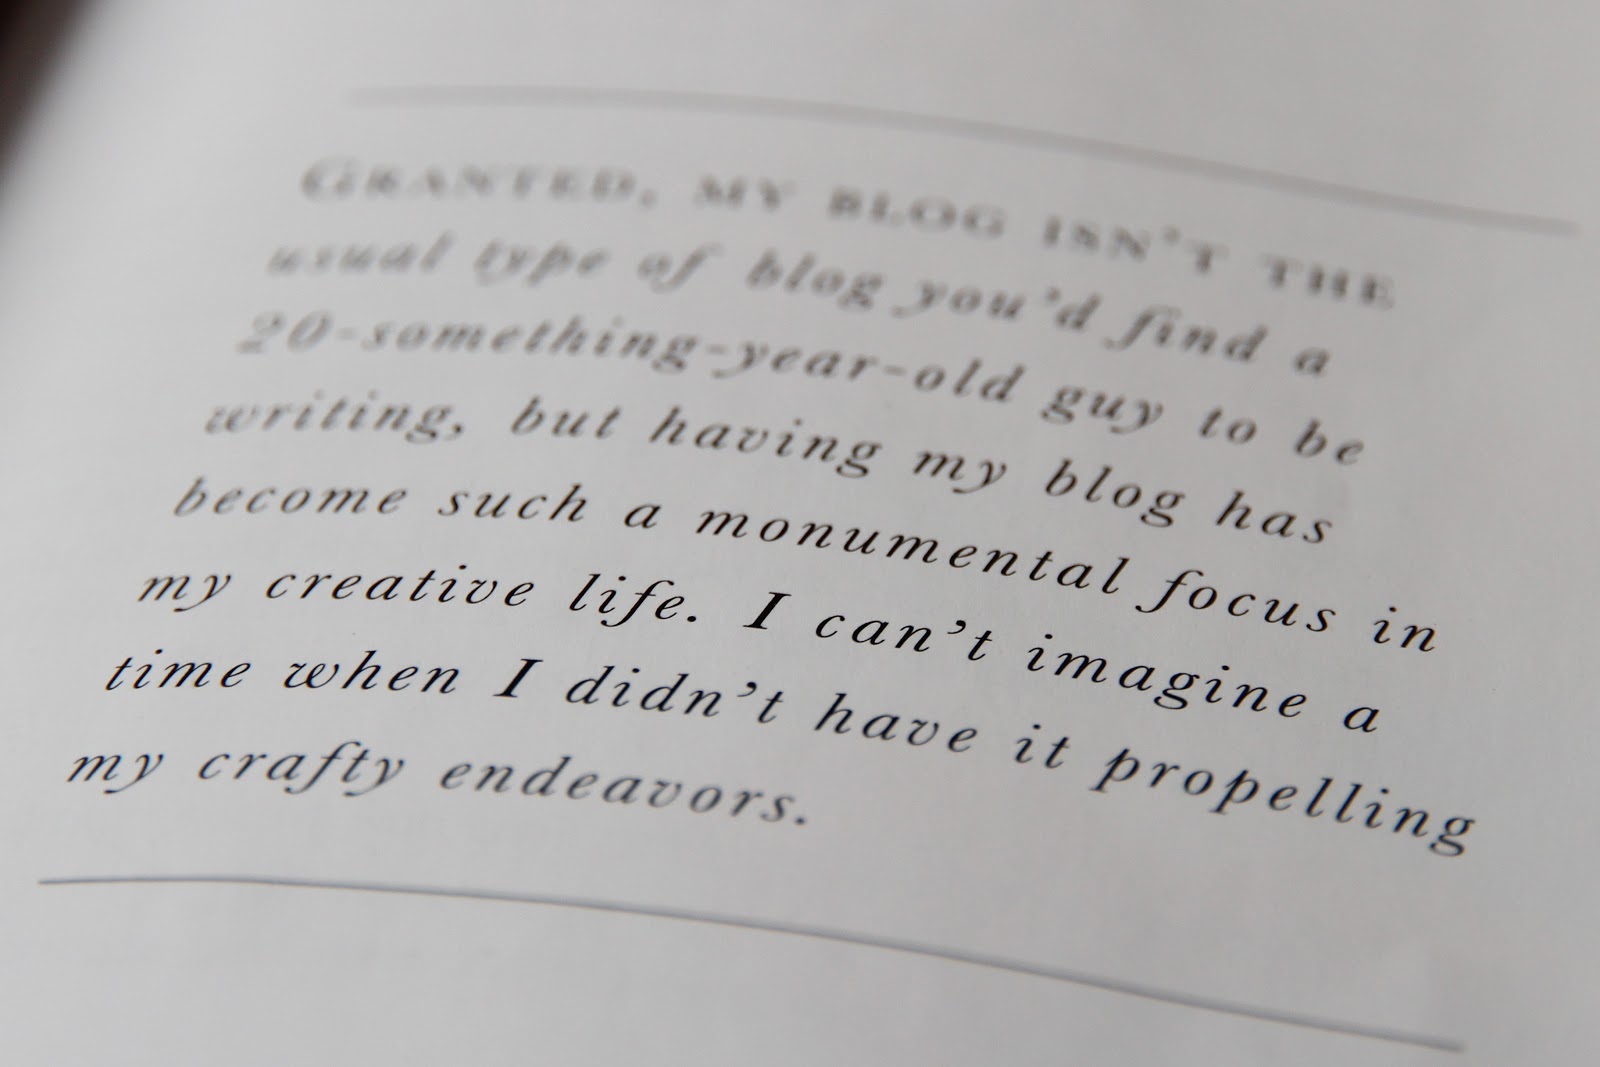 GRANTED, MY BLOG ISN'T THE
usual type of blog you'd find a
20-something-year-old guy to be
writing, but having my blog has
become such a monumental focus in
my creative life. I can't imagine a
time when I didn't have it propelling
my crafty endeavors.